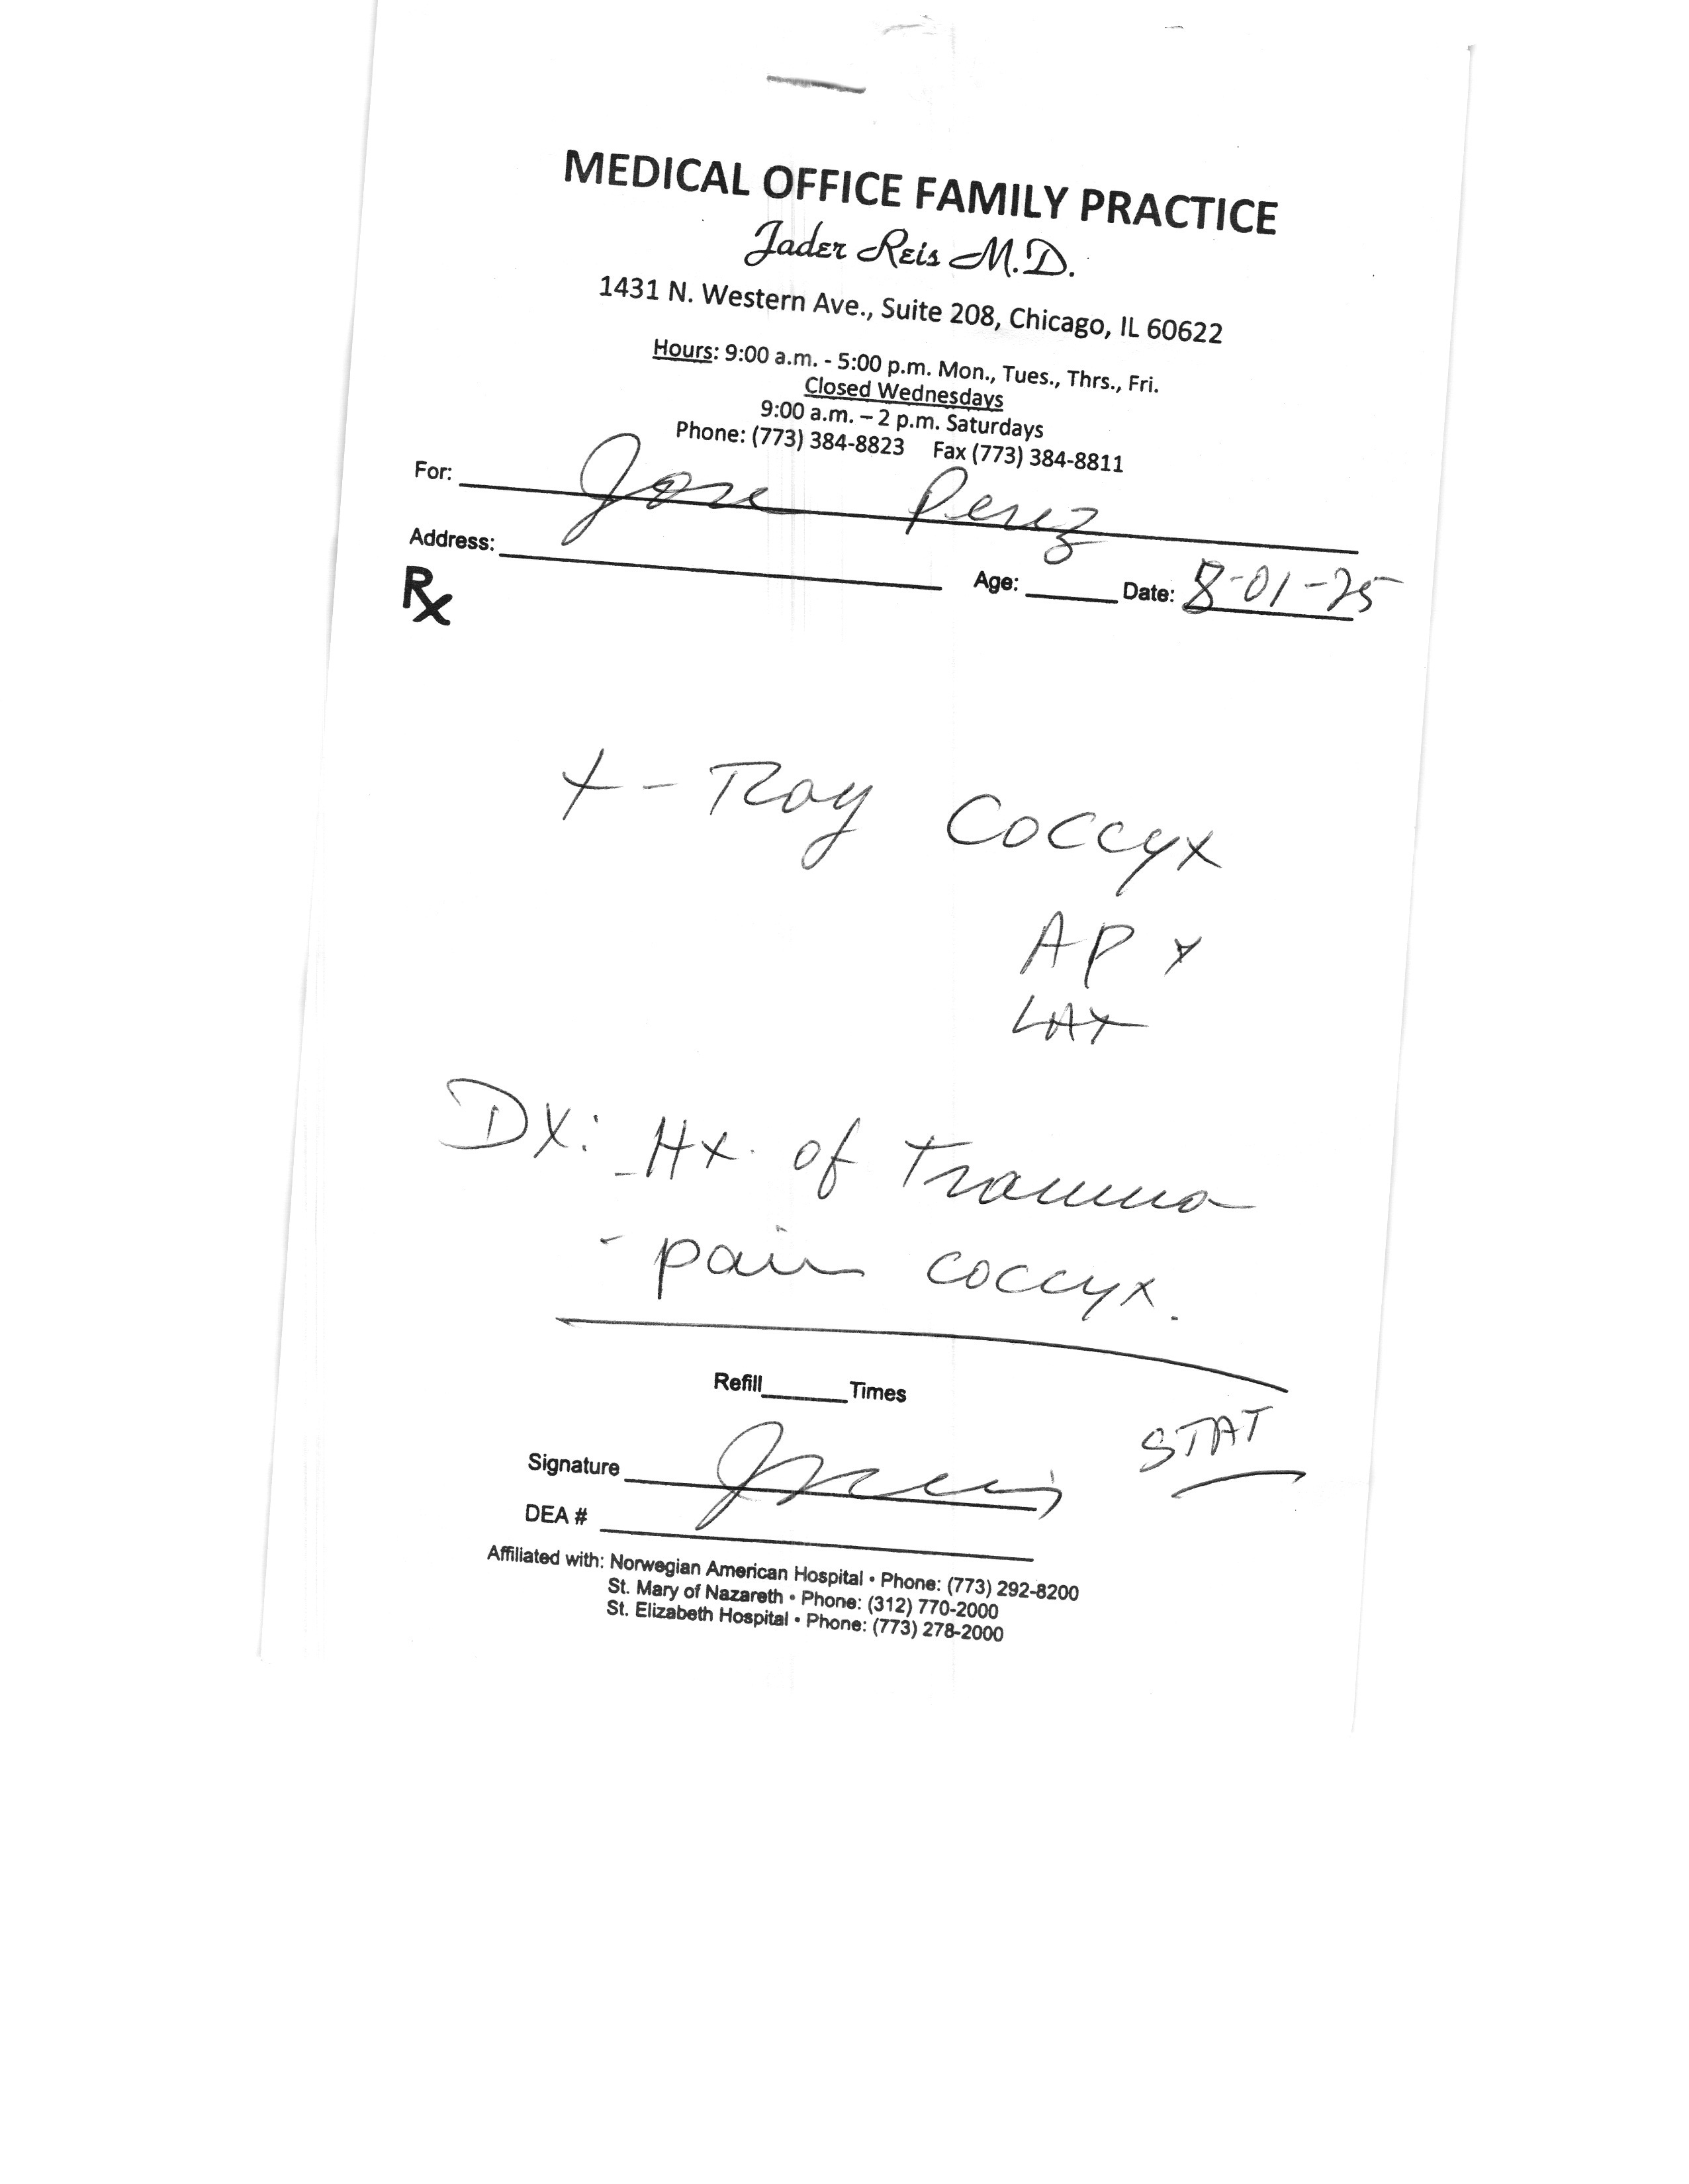 MEDICAL OFFICE FAMILY PRACTICE
Jader Reis M.D.
1431 N. Western Ave., Suite 208, Chicago, IL 60622
Hours: 9:00 a.m. - 5:00 p.m. Mon., Tues., Thrs., Fri.
Closed Wednesdays
9:00 a.m. – 2 p.m. Saturdays
Phone: (773) 384-8823 Fax (773) 384-8811
For: Jose Perez
Address:
Age: Date: 8-01-25
Rx
X-Ray Coccyx
AP y
LAT
DX: - Hx. of Trauma
- pain coccyx.
Refill Times
STAT
Signature
DEA #
Affiliated with: Norwegian American Hospital • Phone: (773) 292-8200
St. Mary of Nazareth • Phone: (312) 770-2000
St. Elizabeth Hospital • Phone: (773) 278-2000